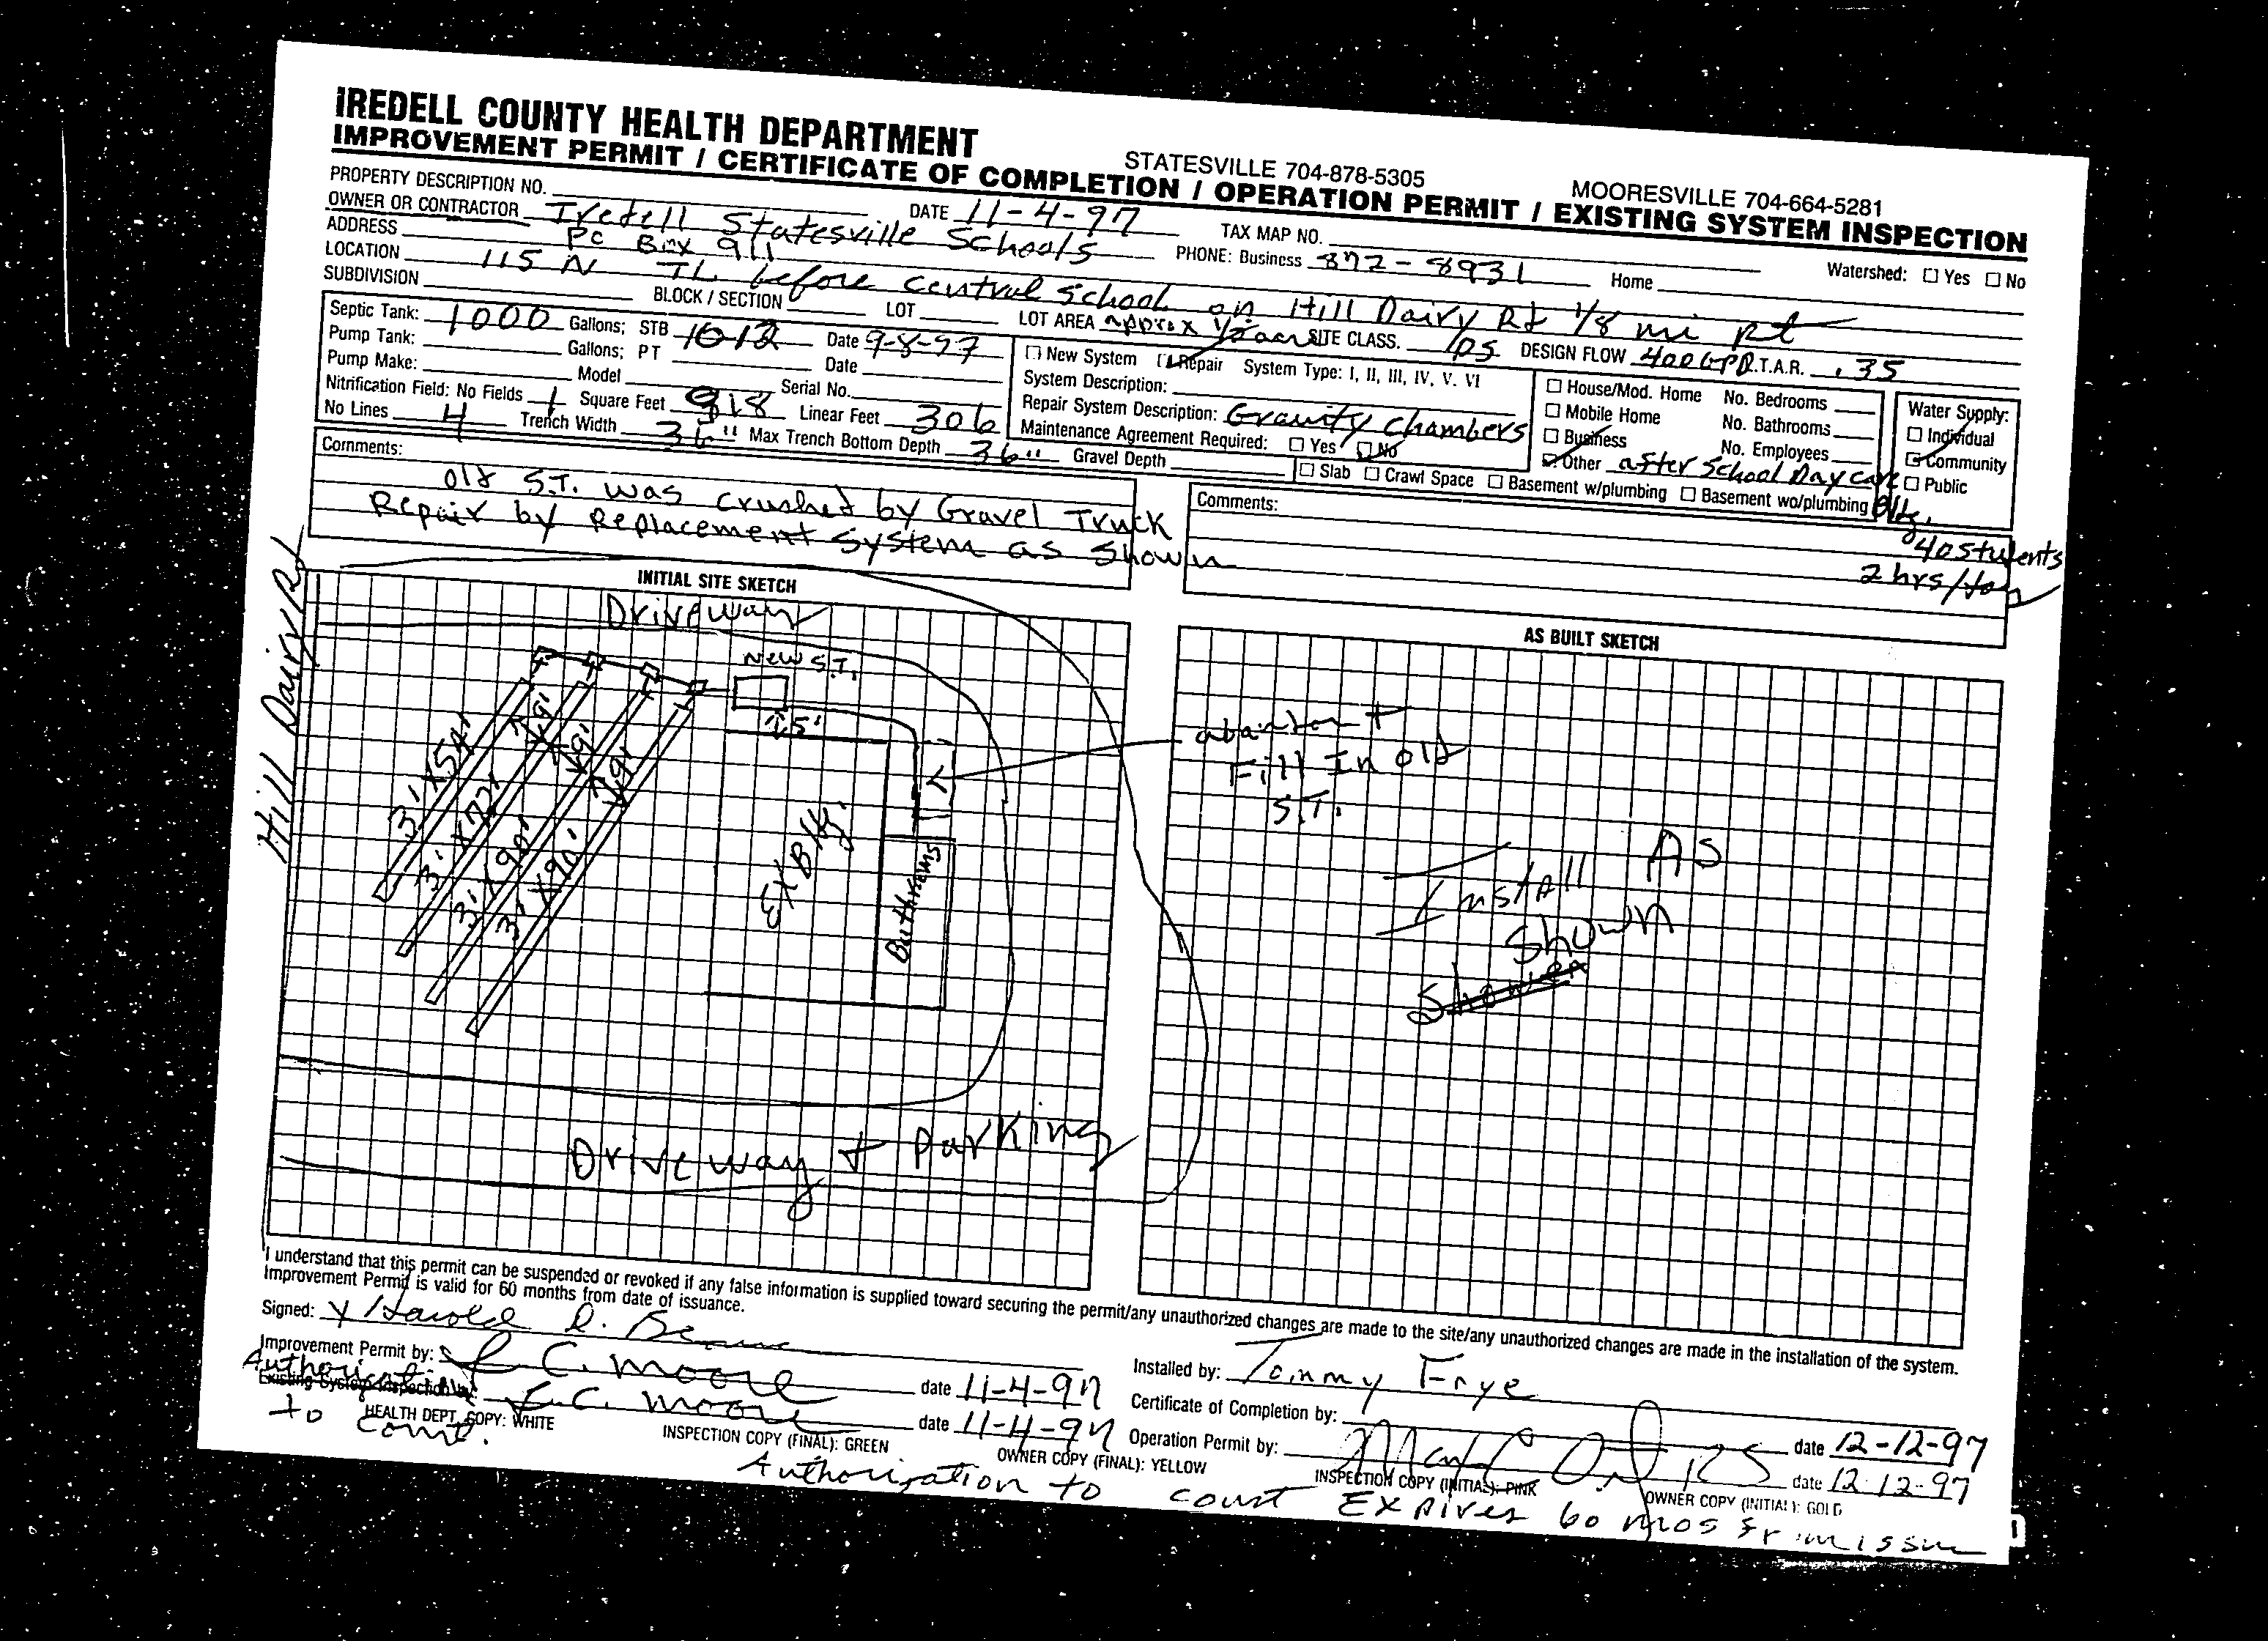 IREDELL COUNTY HEALTH DEPARTMENT STATESVILLE 704-878-5305 MOORESVILLE 704-664-5281
IMPROVEMENT PERMIT / CERTIFICATE OF COMPLETION / OPERATION PERMIT / EXISTING SYSTEM INSPECTION
PROPERTY DESCRIPTION NO. DATE 11-4-97 TAX MAP NO. Watershed: ☐ Yes ☐ No
OWNER OR CONTRACTOR Iredell Statesville Schools PHONE: Business 872-8931 Home
ADDRESS PO Box 911
LOCATION 115 N TL before central school on Hill Dairy Rd 1/8 mi Rt
SUBDIVISION BLOCK / SECTION LOT LOT AREA approx 1/2 acre SITE CLASS. PS DESIGN FLOW 400 GPD L.T.A.R. .35
Septic Tank: 1000 Gallons; STB 1012 Date 9-8-97
Pump Tank: Gallons; PT Date
Pump Make: Model Serial No.
Nitrification Field: No Fields 1 Square Feet 918 Linear Feet 306
No Lines 4 Trench Width 36" Max Trench Bottom Depth 36" Gravel Depth
☐ New System ☑ Repair System Type: I, II, III, IV, V. VI
System Description:
Repair System Description: Gravity Chambers
Maintenance Agreement Required: ☐ Yes ☑ No
☐ Slab ☐ Crawl Space ☐ Basement w/plumbing ☐ Basement wo/plumbing
☐ House/Mod. Home No. Bedrooms
☐ Mobile Home No. Bathrooms
☐ Business No. Employees
☑ Other after School Day care Bldg.
40 students
2 hrs/day
Water Supply:
☐ Individual
☑ Community
☐ Public
Comments:
old S.T. was crushed by Gravel Truck
Repair by Replacement System as Shown
Comments:
INITIAL SITE SKETCH
Driveway
Hill Dairy Rd
New S.T.
15'
3' X 54'
3' X 72'
3' X 90'
3' X 90'
9'
9'
9'
Ex Bldg.
Bathrooms
Driveway + Parking
AS BUILT SKETCH
abandon +
Fill In old
S.T.
Install AS
Shown
I understand that this permit can be suspended or revoked if any false information is supplied toward securing the permit/any unauthorized changes are made to the site/any unauthorized changes are made in the installation of the system.
Improvement Permit is valid for 60 months from date of issuance.
Signed: X Harold D.
Improvement Permit by: C. Moore date 11-4-97
Authorization
Existing System Inspection by: C. Moore date 11-4-97
to const.
Installed by: Tommy Frye
Certificate of Completion by: date 12-12-97
Operation Permit by: date 12-12-97
HEALTH DEPT. COPY: WHITE INSPECTION COPY (FINAL): GREEN OWNER COPY (FINAL): YELLOW INSPECTION COPY (INITIAL): PINK OWNER COPY (INITIAL): GOLD
Authorization to const Expires 60 mos from issue